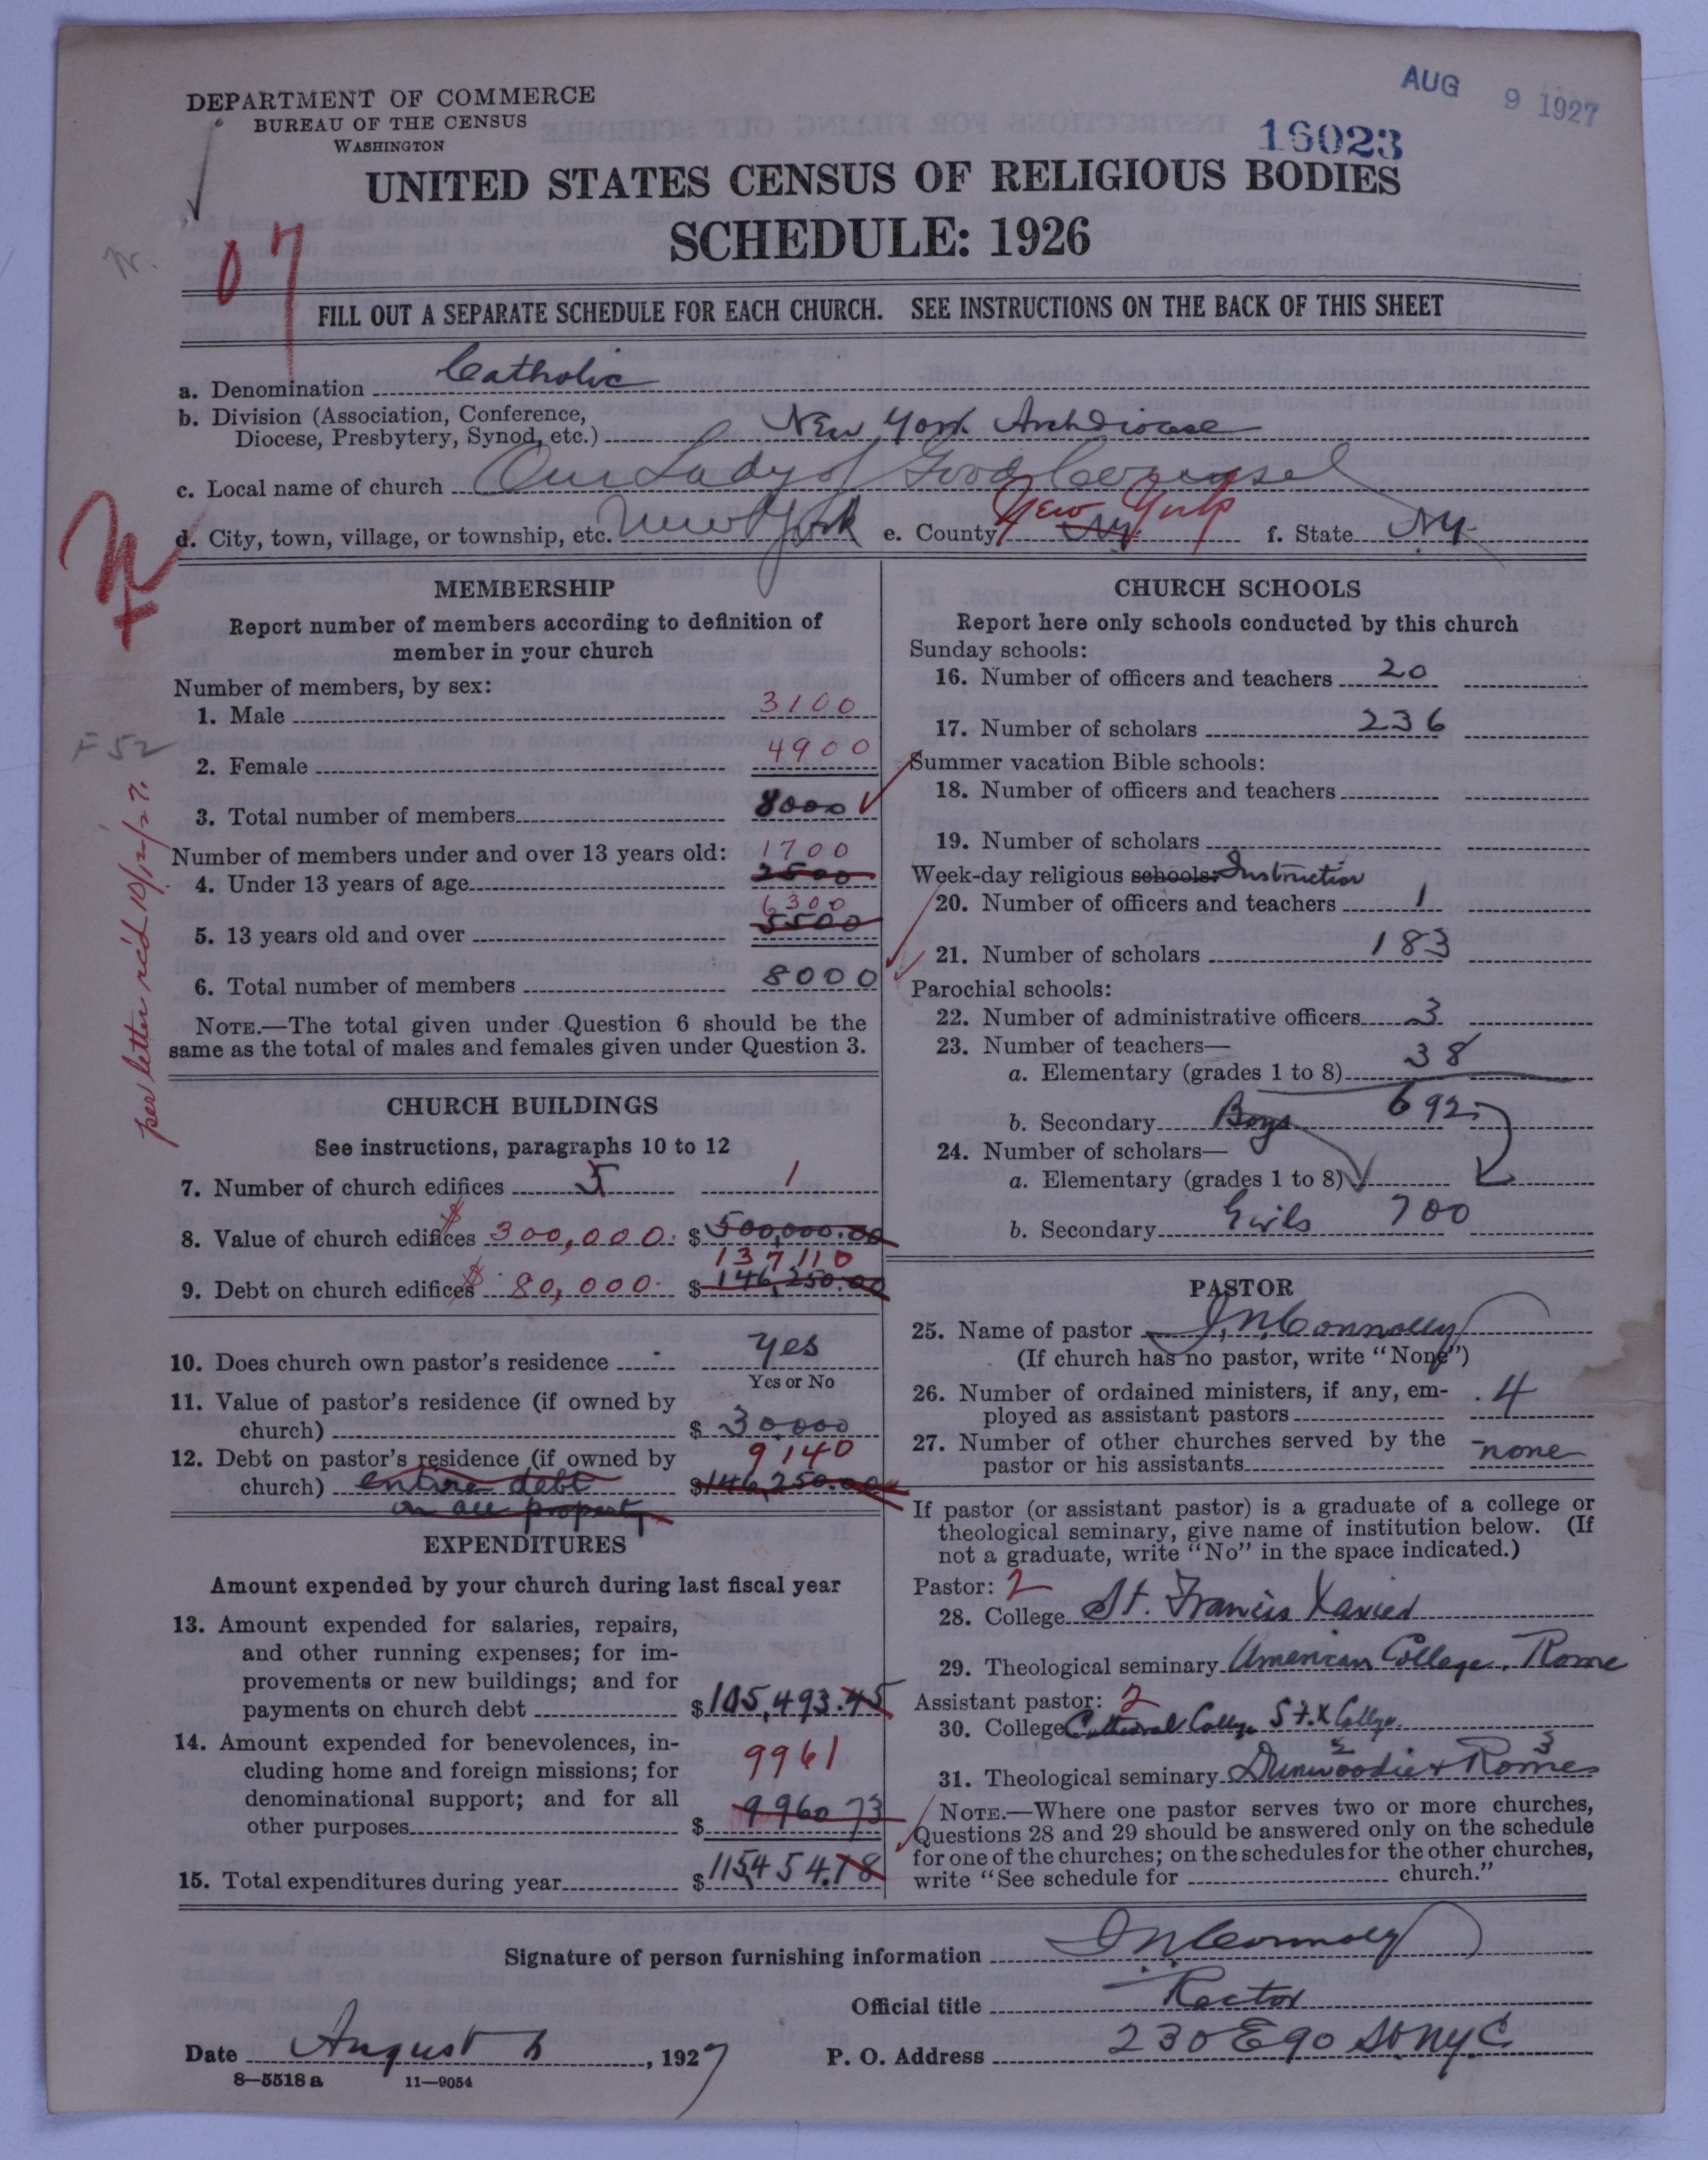 AUG 9 1927
DEPARTMENT OF COMMERCE
BUREAU OF THE CENSUS
WASHINGTON
16023
UNITED STATES CENSUS OF RELIGIOUS BODIES
SCHEDULE: 1926
07
FILL OUT A SEPARATE SCHEDULE FOR EACH CHURCH. SEE INSTRUCTIONS ON THE BACK OF THIS SHEET
a. Denomination Catholic
b. Division (Association, Conference,
Diocese, Presbytery, Synod, etc.) New York Archdiocese
c. Local name of church Our Lady of Good Counsel
d. City, town, village, or township, etc. New York e. County NY New York f. State NY
MEMBERSHIP
Report number of members according to definition of
member in your church
Number of members, by sex:
1. Male 3100
2. Female 4900
F 52
3. Total number of members 8000
Number of members under and over 13 years old: 1700
4. Under 13 years of age 2500
6300
5. 13 years old and over 5500
6. Total number of members 8000
NOTE.—The total given under Question 6 should be the
same as the total of males and females given under Question 3.
per letter rc'd 10/12/27.
CHURCH BUILDINGS
See instructions, paragraphs 10 to 12
7. Number of church edifices 5 1
8. Value of church edifices $ 300,000. $ 500,000.00
137,110
9. Debt on church edifices $ 80,000. $ 146,250.00
10. Does church own pastor's residence yes
Yes or No
11. Value of pastor's residence (if owned by
church) $ 30,000
12. Debt on pastor's residence (if owned by 9140
church) entire debt $146,250.00
on all property
EXPENDITURES
Amount expended by your church during last fiscal year
13. Amount expended for salaries, repairs,
and other running expenses; for im-
provements or new buildings; and for
payments on church debt $105,493.45
14. Amount expended for benevolences, in-
cluding home and foreign missions; for 9961
denominational support; and for all
other purposes $ 9960 73
15. Total expenditures during year $115,454.18
CHURCH SCHOOLS
Report here only schools conducted by this church
Sunday schools:
16. Number of officers and teachers 20
17. Number of scholars 236
Summer vacation Bible schools:
18. Number of officers and teachers
19. Number of scholars
Week-day religious schools: Instruction
20. Number of officers and teachers 1
21. Number of scholars 183
Parochial schools:
22. Number of administrative officers 3
23. Number of teachers—
a. Elementary (grades 1 to 8) 38
b. Secondary Boys 692
24. Number of scholars—
a. Elementary (grades 1 to 8)
b. Secondary Girls 700
PASTOR
25. Name of pastor J.N. Connolly
(If church has no pastor, write "None")
26. Number of ordained ministers, if any, em-
ployed as assistant pastors 4
27. Number of other churches served by the
pastor or his assistants none
If pastor (or assistant pastor) is a graduate of a college or
theological seminary, give name of institution below. (If
not a graduate, write "No" in the space indicated.)
Pastor: 2
28. College St. Francis Xavier
29. Theological seminary American College, Rome
Assistant pastor: 2
30. College Cathedral College St. F. X College
31. Theological seminary Dunwoodie 2 + Rome 3
NOTE.—Where one pastor serves two or more churches,
Questions 28 and 29 should be answered only on the schedule
for one of the churches; on the schedules for the other churches,
write "See schedule for church."
Signature of person furnishing information J N Connolly
Official title Rector
Date August 6, 1927 P. O. Address 230 E 90 St NYC
8—5518 a 11—9054